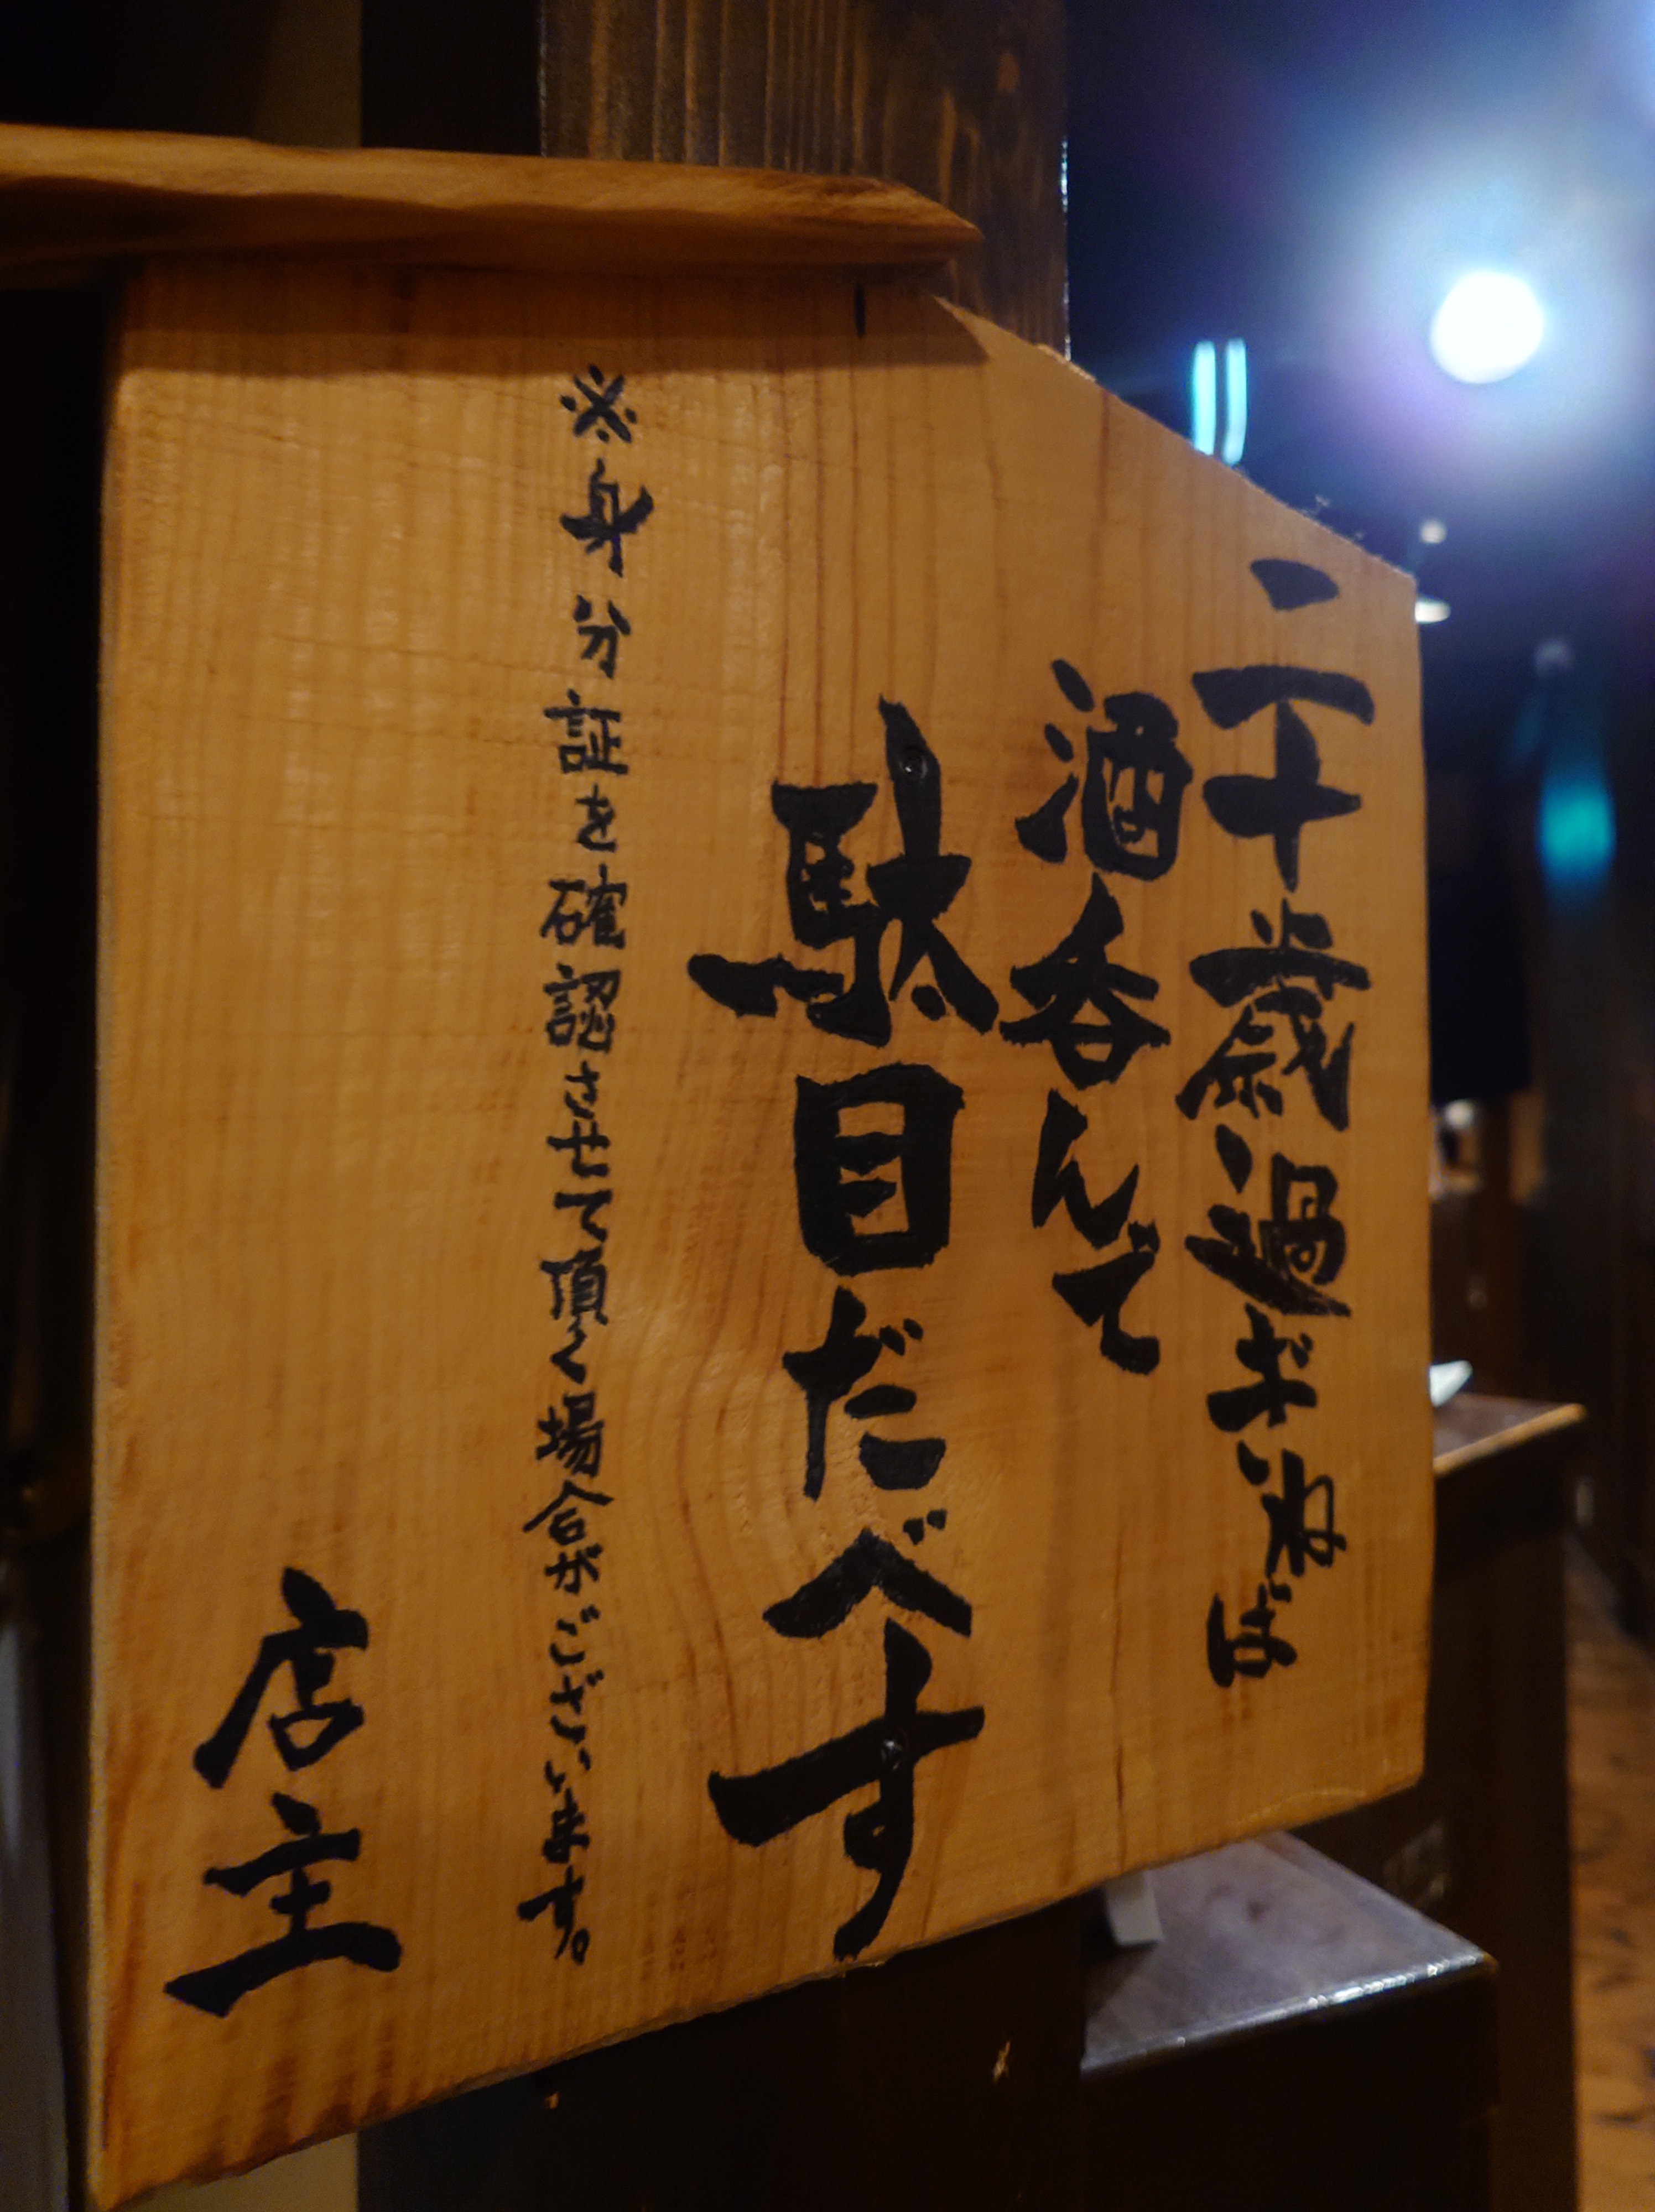 二十歳過ぎねば
酒呑んで
駄目だべす
※身分証を確認させて頂く場合がございます。
店主